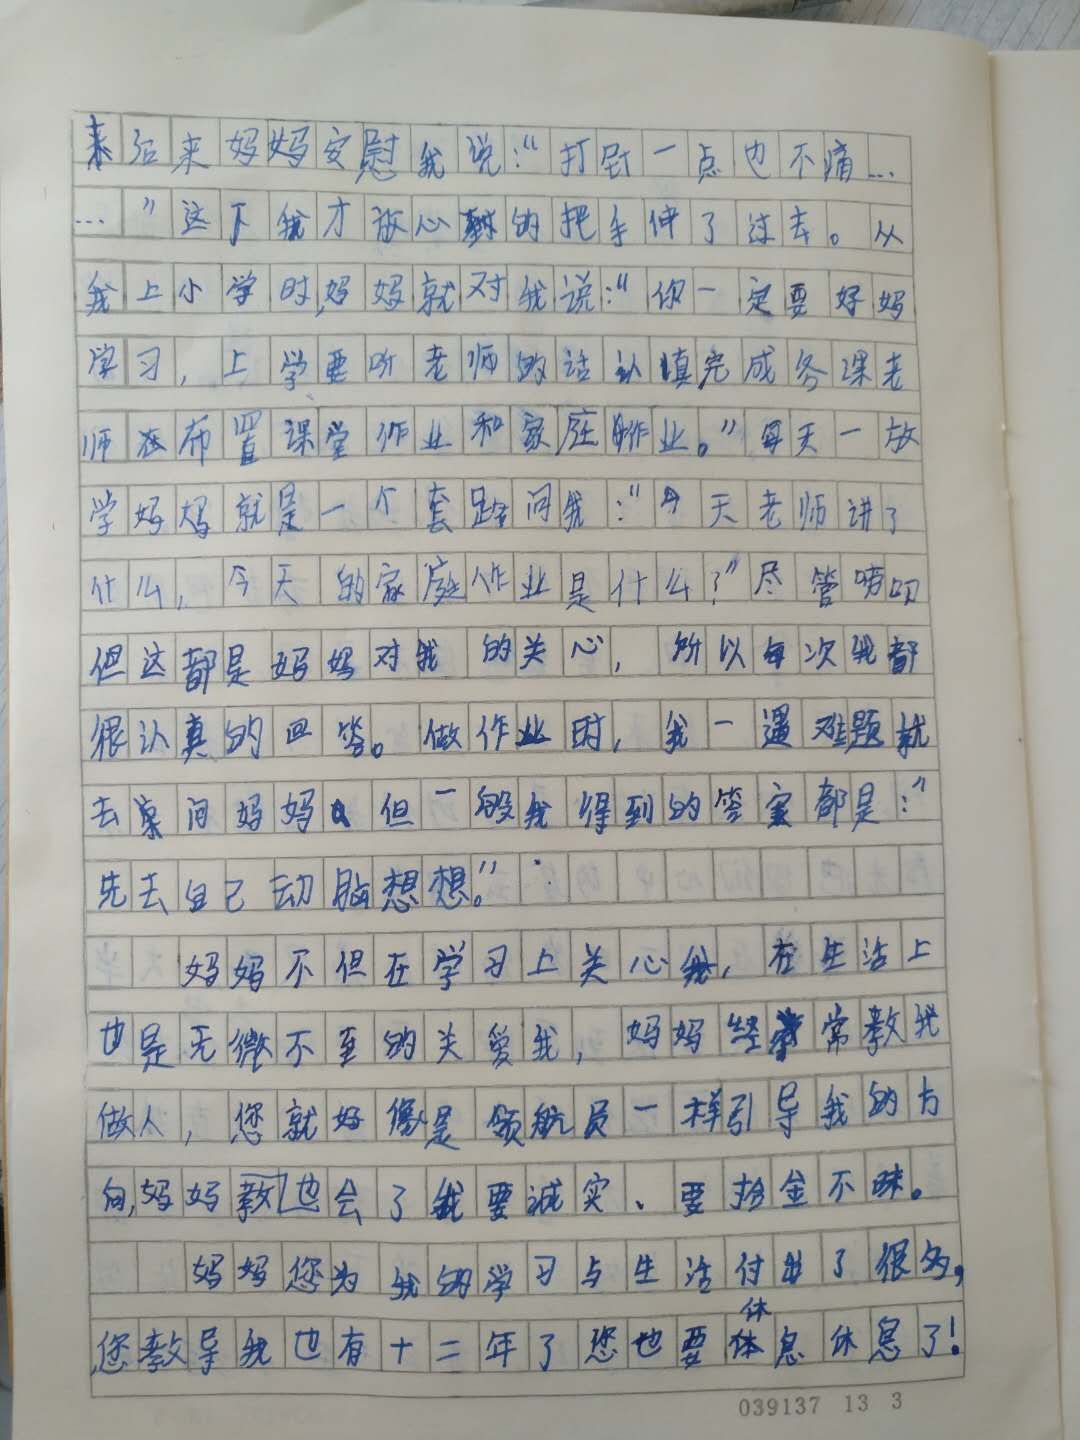 后来妈妈安慰我说:“打针一点也不痛…
…”这下我才放心的把手伸了过去。从
我上小学时,妈妈就对我说:“你一定要好妈
学习,上学要听老师的话认填完成各课老
师布置课堂作业和家庭作业。”每天一放
学妈妈就是一个套路问我:“今天老师讲了
什么,今天的家庭作业是什么?”尽管唠叨
但这都是妈妈对我的关心,所以每次我都
很认真的回答。做作业时,我一遇难题就
去问妈妈但一般我得到的答案都是:“
先去自己动脑想想。”
妈妈不但在学习上关心我,在生活上
也是无微不至的关爱我,妈妈经常教我
做人,您就好像是领航员一样引导我的方
向,妈妈教也会了我要诚实、要拾金不昧。
妈妈您为我的学习与生活付出了很多,
您教导我也有十二年了您也要休息休息了!
039137 13 3